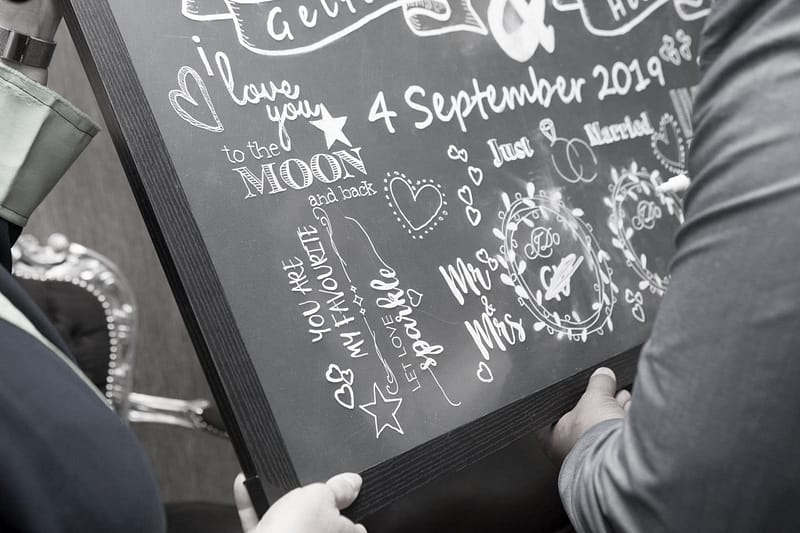 &
i love
you
to the
MOON
and back
4 September 2019
Just Married
YOU ARE
MY FAVOURITE
LET LOVE
sparkle
Mr
&
Mrs
I Do
I Do